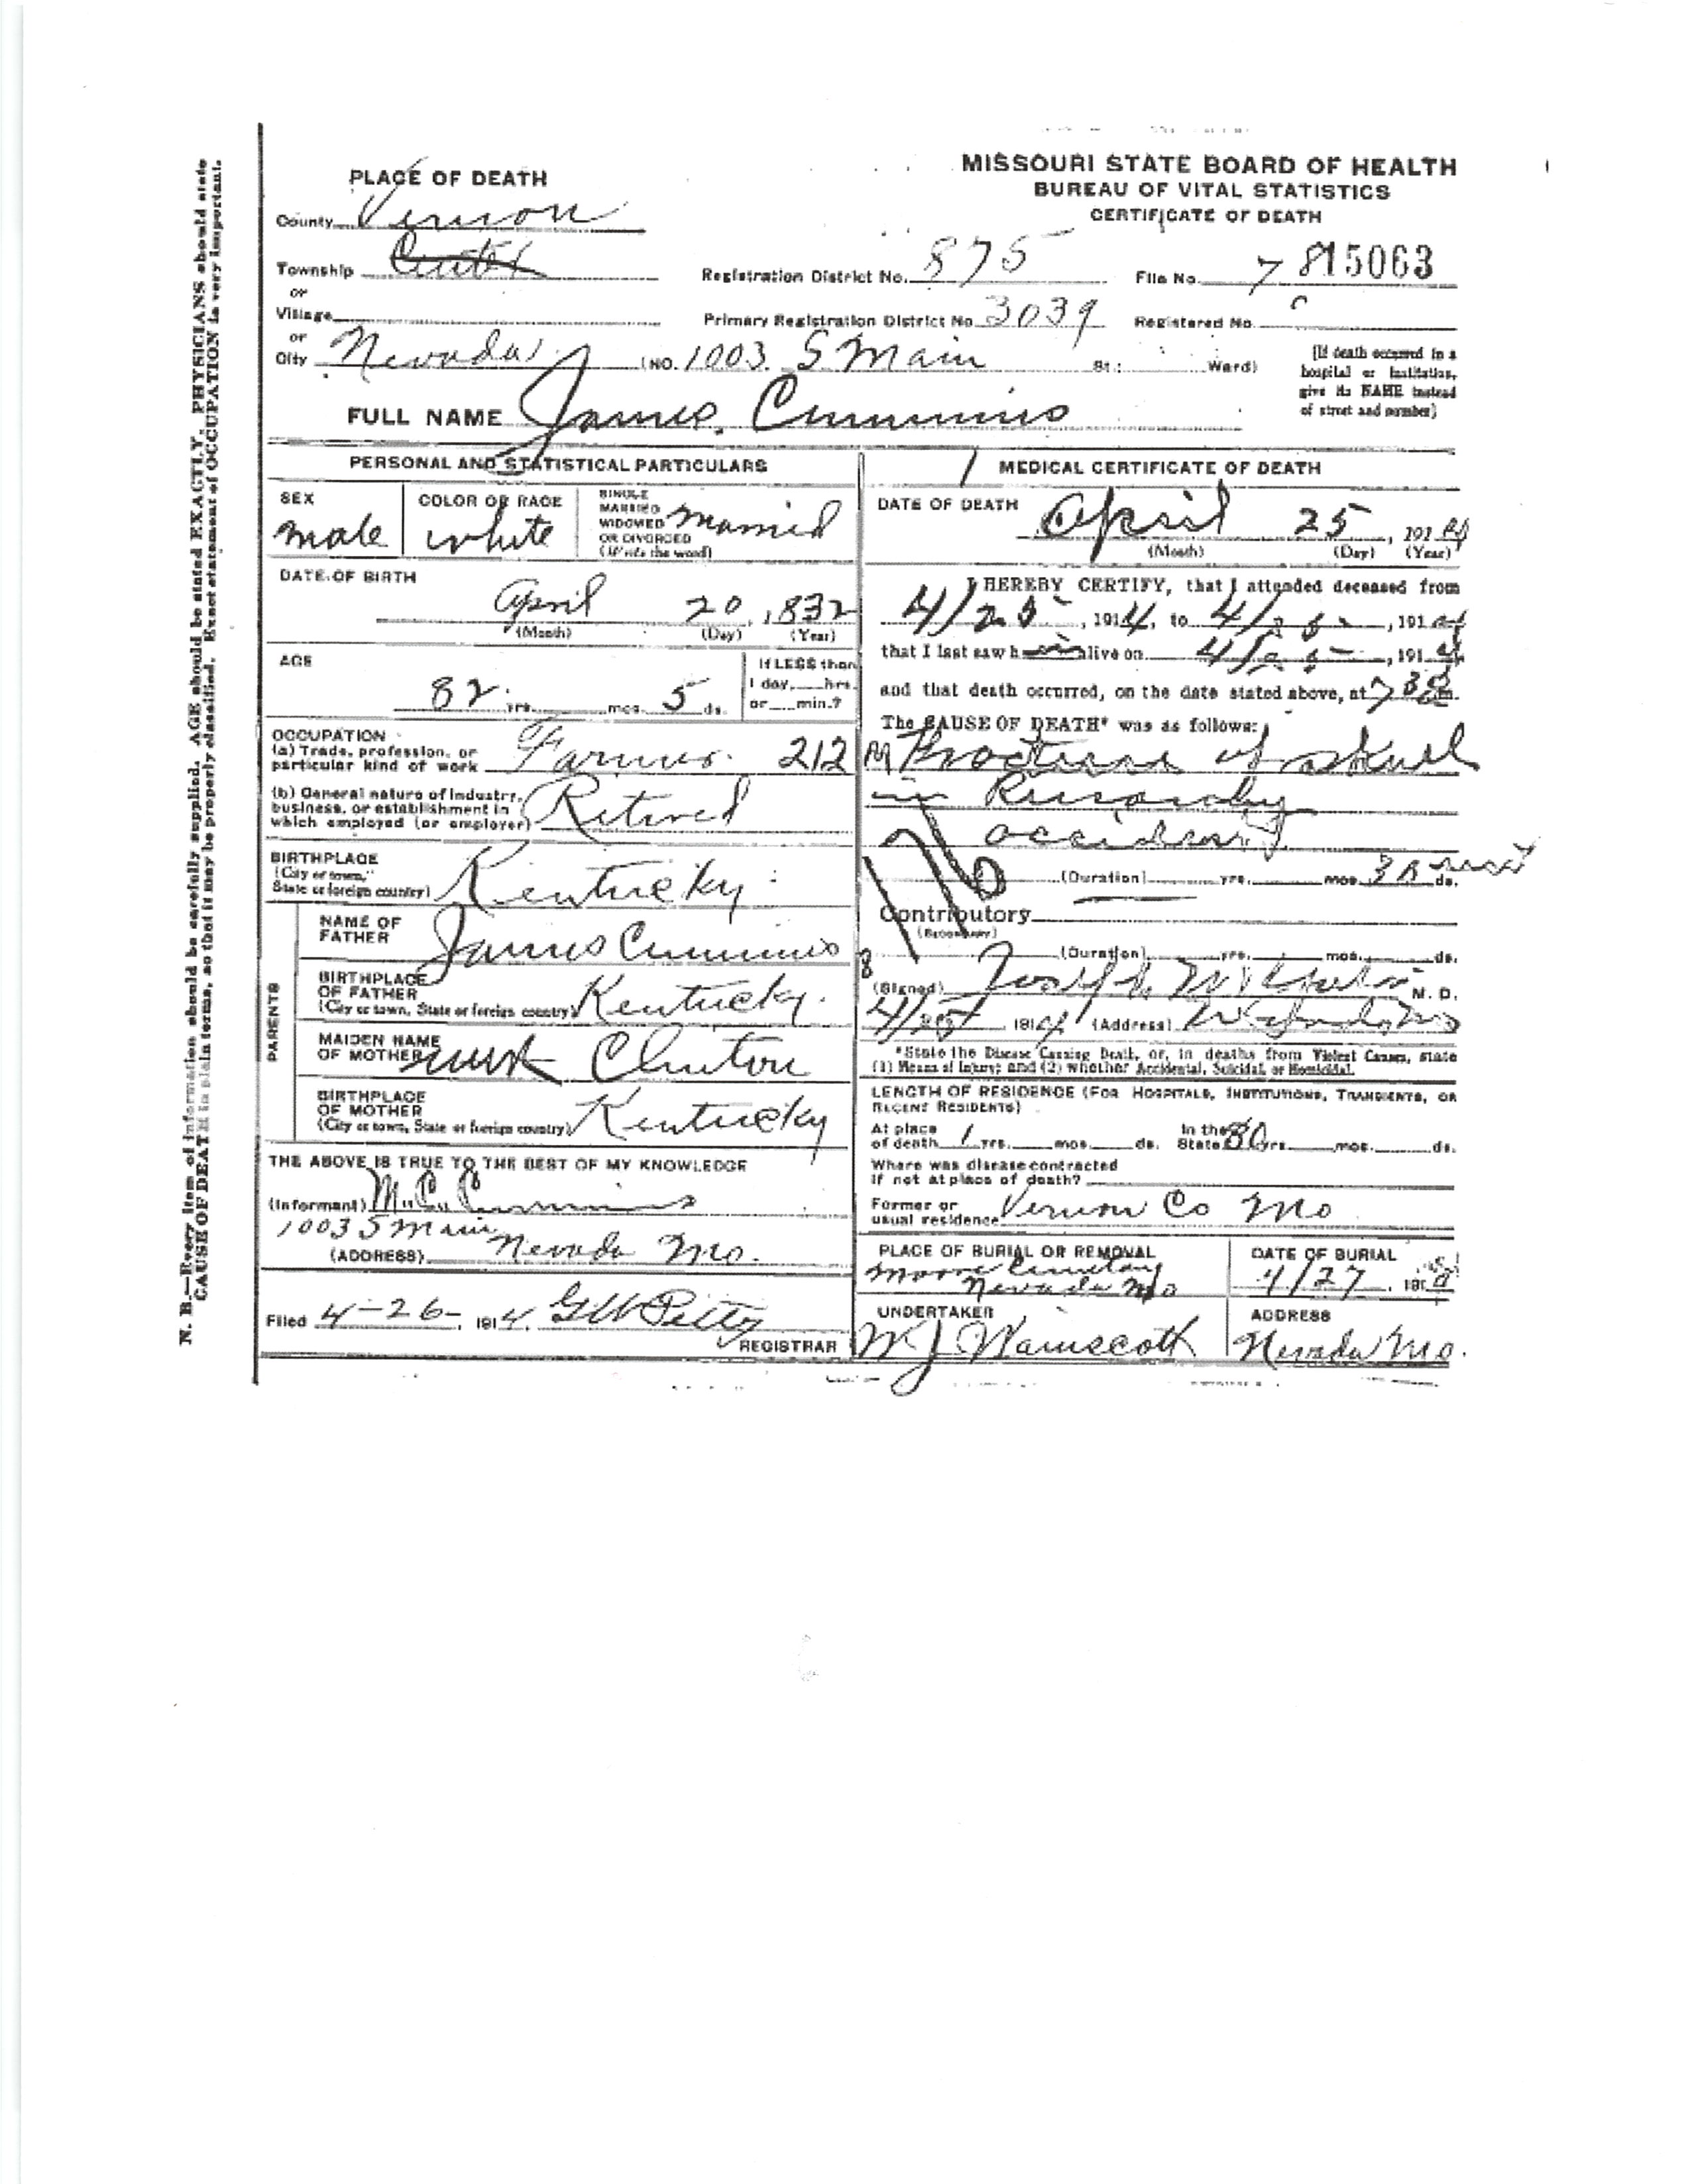 MISSOURI STATE BOARD OF HEALTH
BUREAU OF VITAL STATISTICS
CERTIFICATE OF DEATH
PLACE OF DEATH
County Vernon
Township Center
or
Village
or
City Nevada (NO. 1003 S Main St.; Ward)
Registration District No. 875
File No. 15063
Primary Registration District No. 3039
Registered No.
[If death occurred in a
hospital or institution,
give its NAME instead
of street and number]
FULL NAME James Cummins
PERSONAL AND STATISTICAL PARTICULARS
SEX
male
COLOR OR RACE
white
SINGLE
MARRIED
WIDOWED
OR DIVORCED
(Write the word)
married
DATE OF BIRTH
April 20, 1832
(Month) (Day) (Year)
AGE
82 yrs. mos. 5 ds.
If LESS than
1 day, hrs.
or min.?
OCCUPATION
(a) Trade, profession, or
particular kind of work Farmer 212
(b) General nature of industry,
business, or establishment in
which employed (or employer) Retired
BIRTHPLACE
(City or town,
State or foreign country) Kentucky
PARENTS
NAME OF
FATHER James Cummins
BIRTHPLACE
OF FATHER
(City or town, State or foreign country) Kentucky.
MAIDEN NAME
OF MOTHER Clinton
BIRTHPLACE
OF MOTHER
(City or town, State or foreign country) Kentucky
THE ABOVE IS TRUE TO THE BEST OF MY KNOWLEDGE
(Informant) M. C. Cummins
1003 S Main
(ADDRESS) Nevada Mo.
Filed 4-26-, 1914, REGISTRAR
MEDICAL CERTIFICATE OF DEATH
DATE OF DEATH April 25, 1914
(Month) (Day) (Year)
I HEREBY CERTIFY, that I attended deceased from
4/25, 1914, to 4/25, 1914
that I last saw him alive on 4/25, 1914
and that death occurred, on the date stated above, at 7 30 m.
The CAUSE OF DEATH* was as follows:
Fracture of skull
in Runaway
accident
(Duration) yrs. mos. ds.
Contributory
(Secondary)
(Duration) yrs. mos. ds.
(Signed) M. D.
4/25, 1914 (Address)
*State the Disease Causing Death, or, in deaths from Violent Causes, state
(1) Means of Injury; and (2) whether Accidental, Suicidal, or Homicidal.
LENGTH OF RESIDENCE (FOR HOSPITALS, INSTITUTIONS, TRANSIENTS, OR
RECENT RESIDENTS)
At place
of death 1 yrs. mos. ds.
In the
State 80 yrs. mos. ds.
Where was disease contracted
if not at place of death?
Former or
usual residence Vernon Co Mo
PLACE OF BURIAL OR REMOVAL
Moore Cemetary
Nevada Mo
DATE OF BURIAL
4/27, 191
UNDERTAKER
W J Wainscott
ADDRESS
Nevada Mo.
N. B.—Every item of information should be carefully supplied. AGE should be stated EXACTLY. PHYSICIANS should state
CAUSE OF DEATH in plain terms, so that it may be properly classified. Exact statement of OCCUPATION is very important.